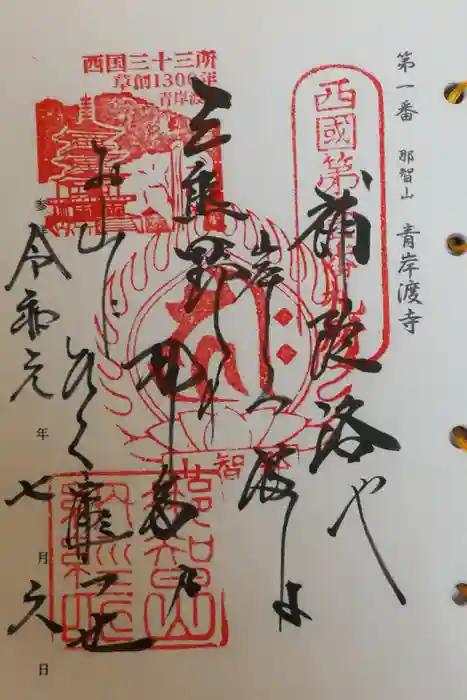 第一番 那智山 青岸渡寺
西国三十三所
草創1300年
西國第
補陀洛や
岸うつ波は
三熊野の
那智の
お山に
ひゞく瀧つせ
令和元年七月六日
那智山